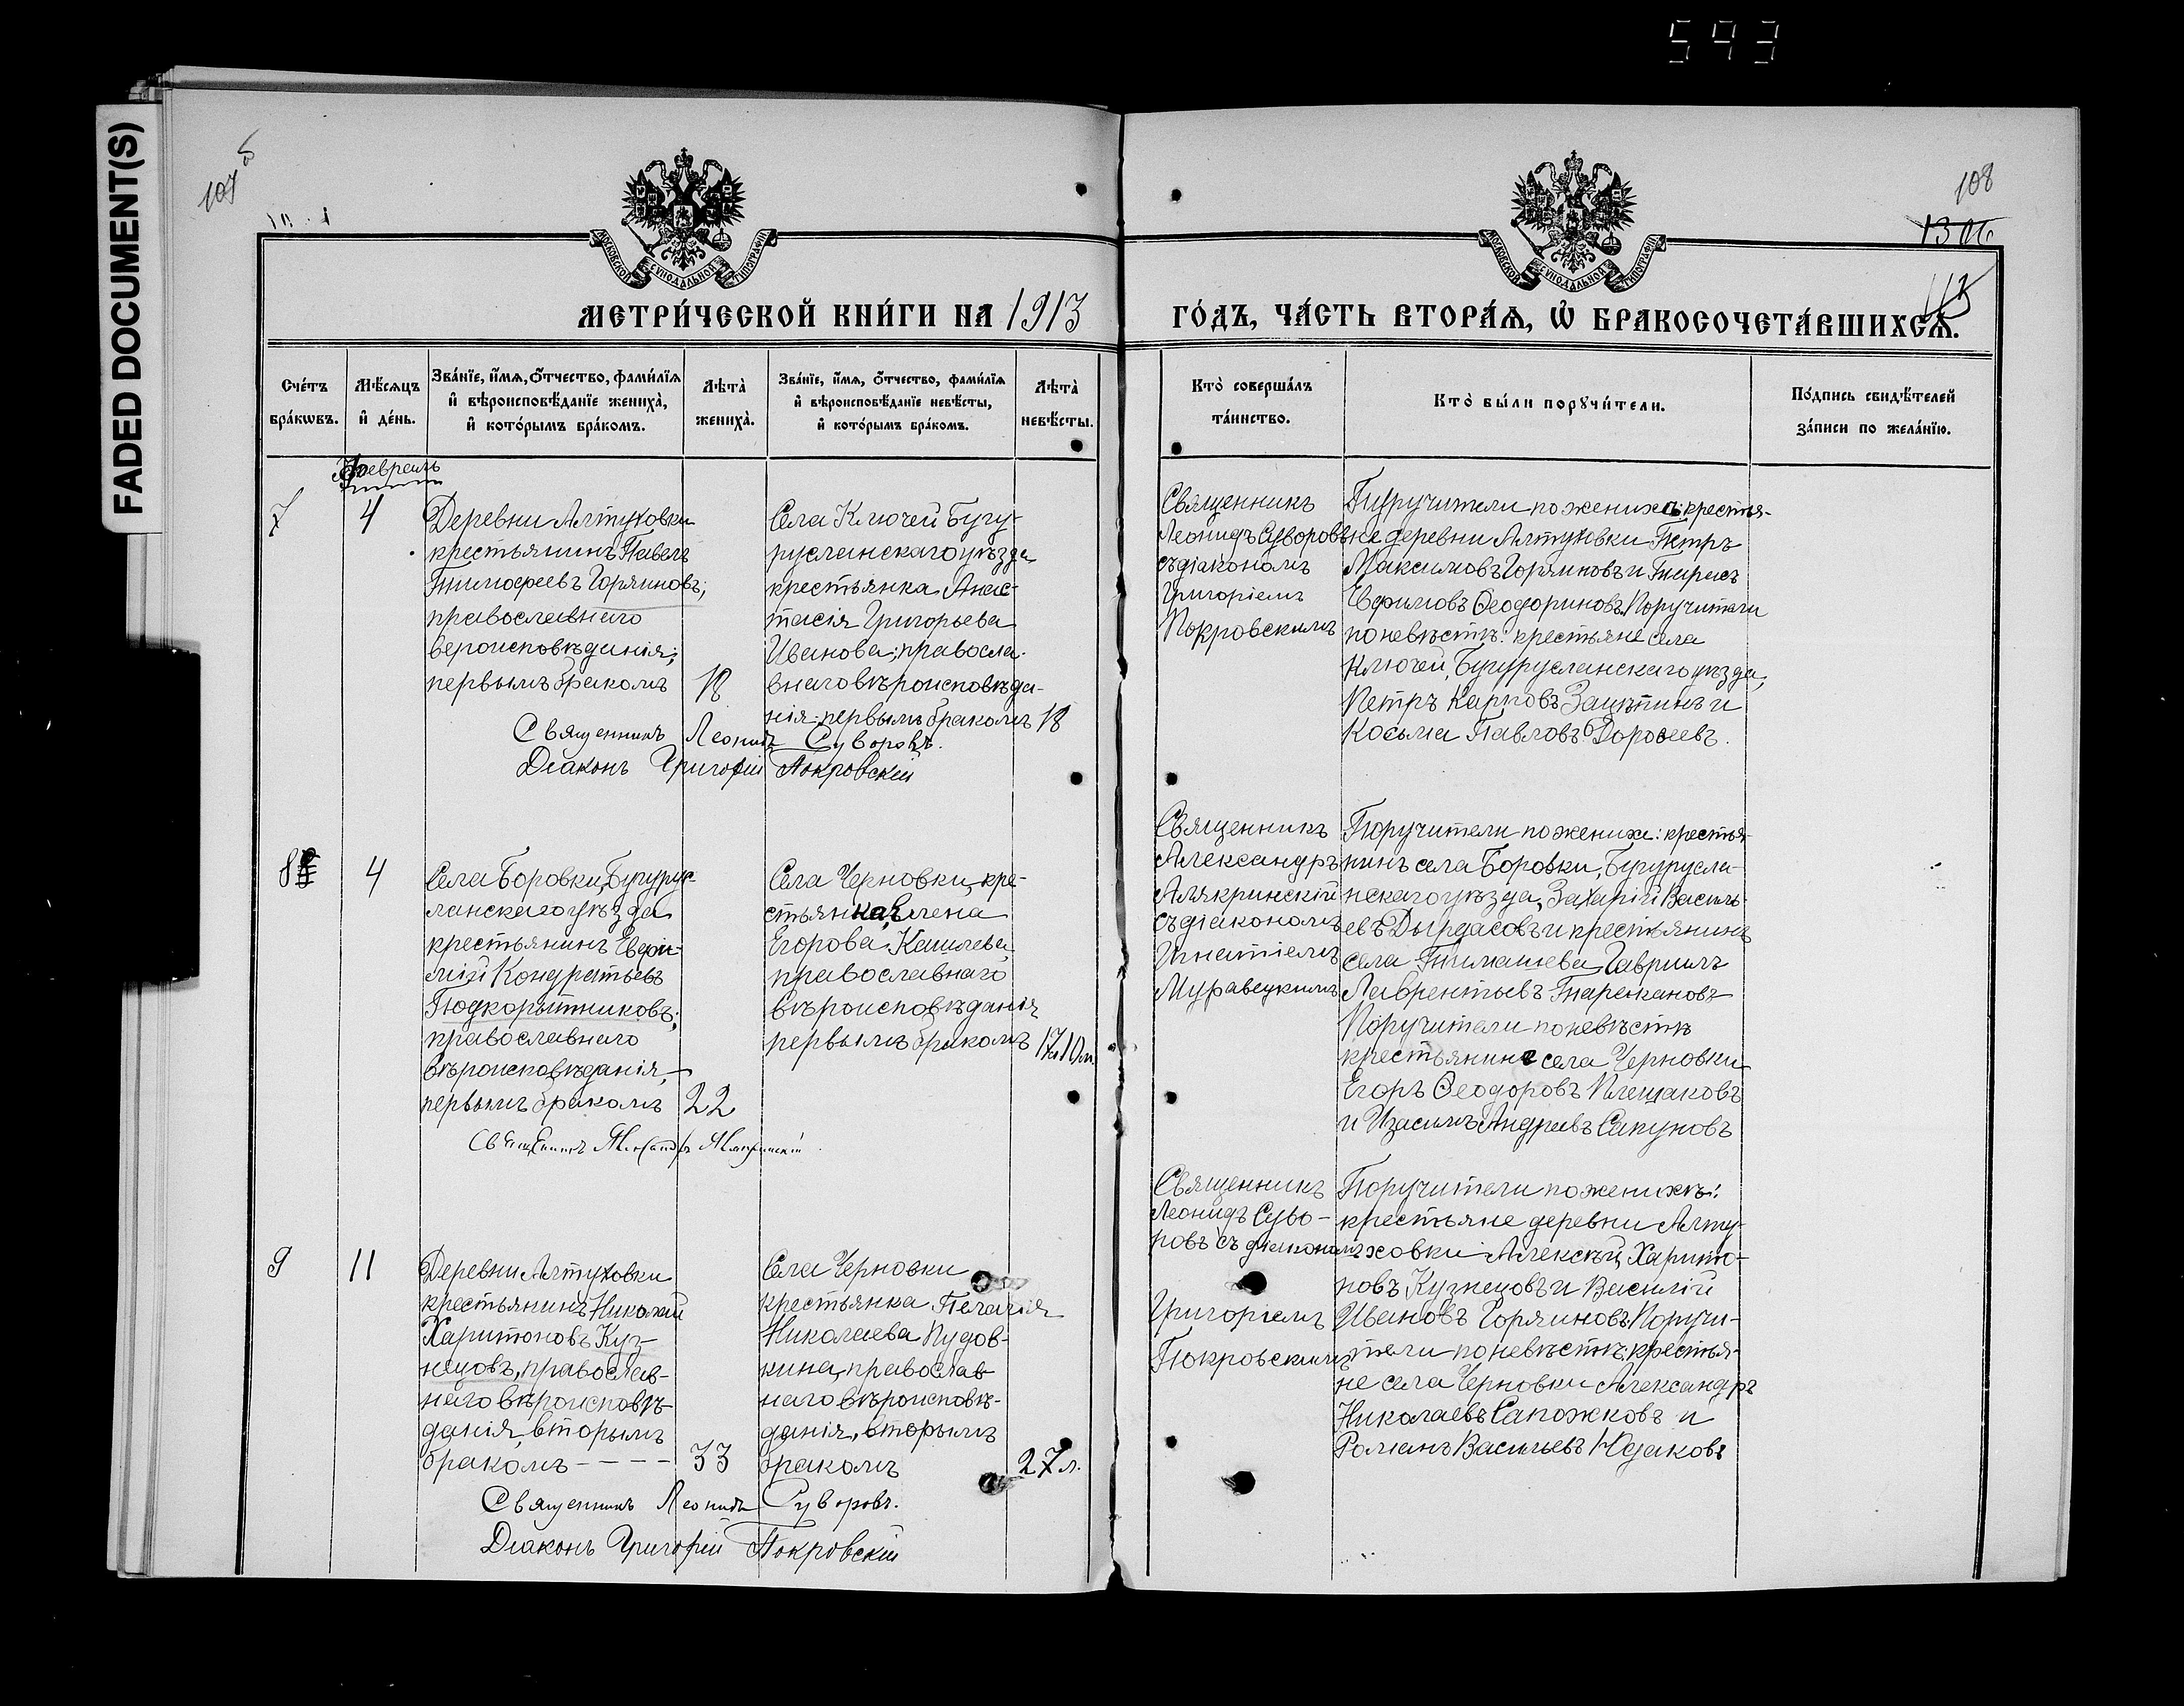 593
FADED DOCUMENT(S)
107
108
1306
МОСКОВСКОЙ СѴНОДАЛЬНОЙ ТИПОГРАФІИ
МОСКОВСКОЙ СѴНОДАЛЬНОЙ ТИПОГРАФІИ
МЕТРИ́ЧЕСКОЙ КНИ́ГИ НА 1913
ГО́ДЪ, ЧА́СТЬ ВТОРА́Ѧ, Ѡ҆ БРАКОСОЧЕТА́ВШИХСѦ.
Сче́тъ
бра́кѡвъ.
Мѣ́сѧцъ
и҆ де́нь.
Зва́нїе, и҆́мѧ, ѻ҆́тчество, фами́лїѧ
и҆ вѣроисповѣ́данїе жениха̀,
и҆ кото́рымъ бра́комъ.
Лѣта̀
жениха̀.
Зва́нїе, и҆́мѧ, ѻ҆́тчество, фами́лїѧ
и҆ вѣроисповѣ́данїе невѣ́сты,
и҆ кото́рымъ бра́комъ.
Лѣта̀
невѣ́сты.
Кто̀ соверша́лъ
та́инство.
Кто̀ бы́ли порꙋчи́тели.
По́дпись свидѣ́телей
за́писи по жела́нїю.
Февраль
7
4
Деревни Алтуховки
крестьянинъ Павелъ
Тимофеевъ Горяиновъ;
православнаго
вероисповѣданія;
первымъ бракомъ
18
Села Ключей Бугу-
русланскаго уѣзда
крестьянка Анас-
тасія Григорьева
Иванова; правосла-
внаго вѣроисповѣда-
нія; первымъ бракомъ
18
Священникъ Леонидъ Суворовъ.
Діаконъ Григорій Покровскій
Священникъ
Леонидъ Суворовъ
съ діакономъ
Григоріемъ
Покровскимъ
Поручители по женихѣ: крестья-
не деревни Алтуховки Петръ
Максимовъ Горяиновъ и Тарасъ
Ефимовъ Ѳеодориновъ. Поручители
по невѣстѣ: крестьяне села
Ключей, Бугурусланскаго уѣзда,
Петръ Карповъ Защепинъ и
Косьма Павловъ Дороѳеевъ.
8
4
Села Боровки, Бугурус-
ланскаго уѣзда
крестьянинъ Евфи-
мій Кондратьевъ
Подкорытниковъ;
православнаго
вѣроисповѣданія,
первымъ бракомъ
22
Села Черновки, кре-
стьянка Елена
Егорова Кашаева
православнаго
вѣроисповѣданія
первымъ бракомъ
17 л 10 м
Священникъ Александръ Алякринскій
Священникъ
Александръ
Алякринскій
съ діакономъ
Игнатіемъ
Муравецкимъ
Поручители по женихѣ: крестья-
нинъ села Боровки, Бугурусла-
нскаго уѣзда, Захарій Василь-
евъ Дырдасовъ и крестьянинъ
села Тимашева Гавріилъ
Лаврентьевъ Таракановъ
Поручители по невѣстѣ
крестьянинъ села Черновки
Егоръ Ѳеодоровъ Плешаковъ
и Андреевъ Сапуновъ
9
11
Деревни Алтуховки
крестьянинъ Николай
Харитоновъ Куз-
нецовъ, православ-
наго вѣроисповѣ-
данія, вторымъ
бракомъ - - - -
33
Села Черновки
крестьянка Пелагія
Николаева Пудов-
кина, православ-
наго вѣроисповѣ-
данія, вторымъ
бракомъ
27 л.
Священникъ Леонидъ Суворовъ.
Діаконъ Григорій Покровскій
Священникъ
Леонидъ Суво-
ровъ съ діакономъ
Григоріемъ
Покровскимъ
Поручители по женихѣ:
крестьяне деревни Алту-
ховки Алексѣй Харито-
новъ Кузнецовъ и Василій
Ивановъ Горяиновъ. Поручи-
тели по невѣстѣ: крестья-
не села Черновки Александръ
Николаевъ Сапожковъ и
Романъ Васильевъ Юдаковъ